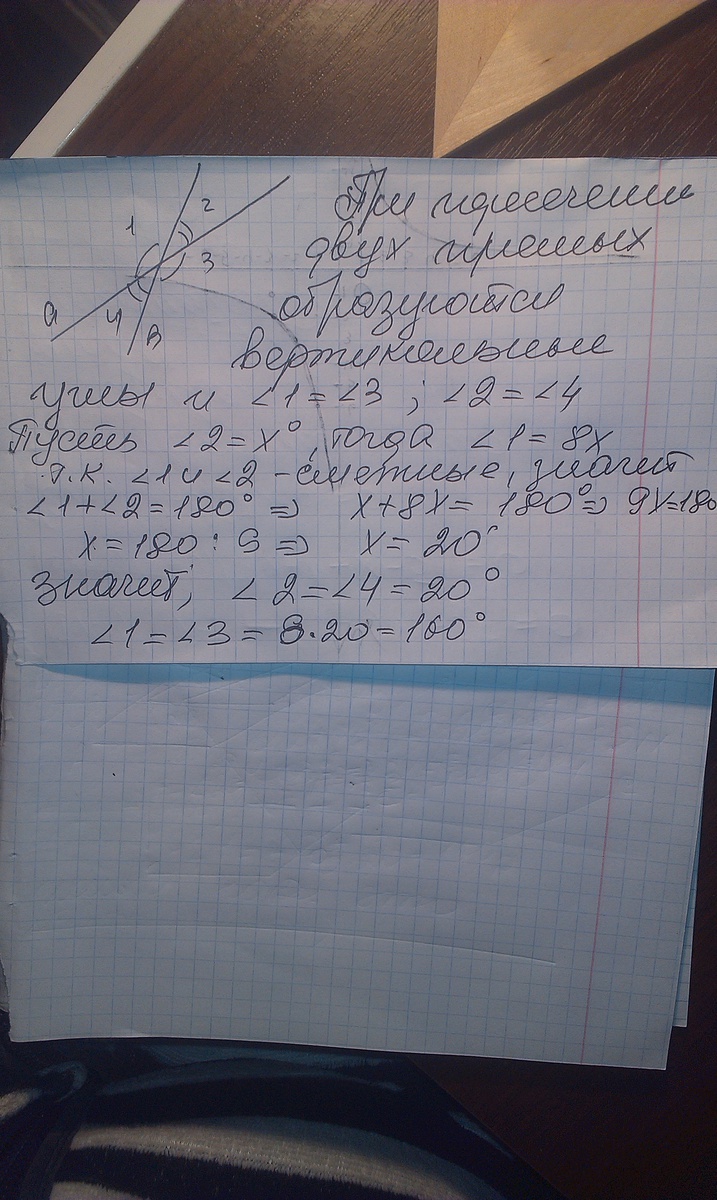 1 2 3 4 a в
При пересечении
двух прямых
образуются
вертикальные
углы и ∠1=∠3 ; ∠2=∠4
Пусть ∠2=x°, тогда ∠1=8x
т.к. ∠1 и ∠2 -смежные, значит
∠1+∠2=180° ⇒ x+8x= 180° ⇒ 9x=180
x=180:9 ⇒ x=20°
значит, ∠2=∠4=20°
∠1=∠3=8·20=160°